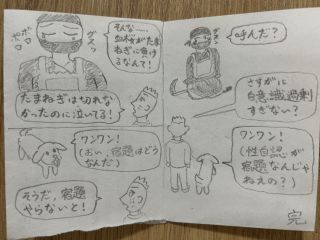 グスン
ポロ
ポロ
そんな……
血桜がたま
ねぎに負け
るなんて!
たまねぎは切れな
かったのに泣いてる!
ワンワン!
(おい、宿題はどう
なんだ)
そうだ、宿題
やらないと!
グスン
呼んだ?
さすがに
自意識過剰
すぎない?
ワンワン!
(性自認が
宿題なんじゃ
ねえの?)
完